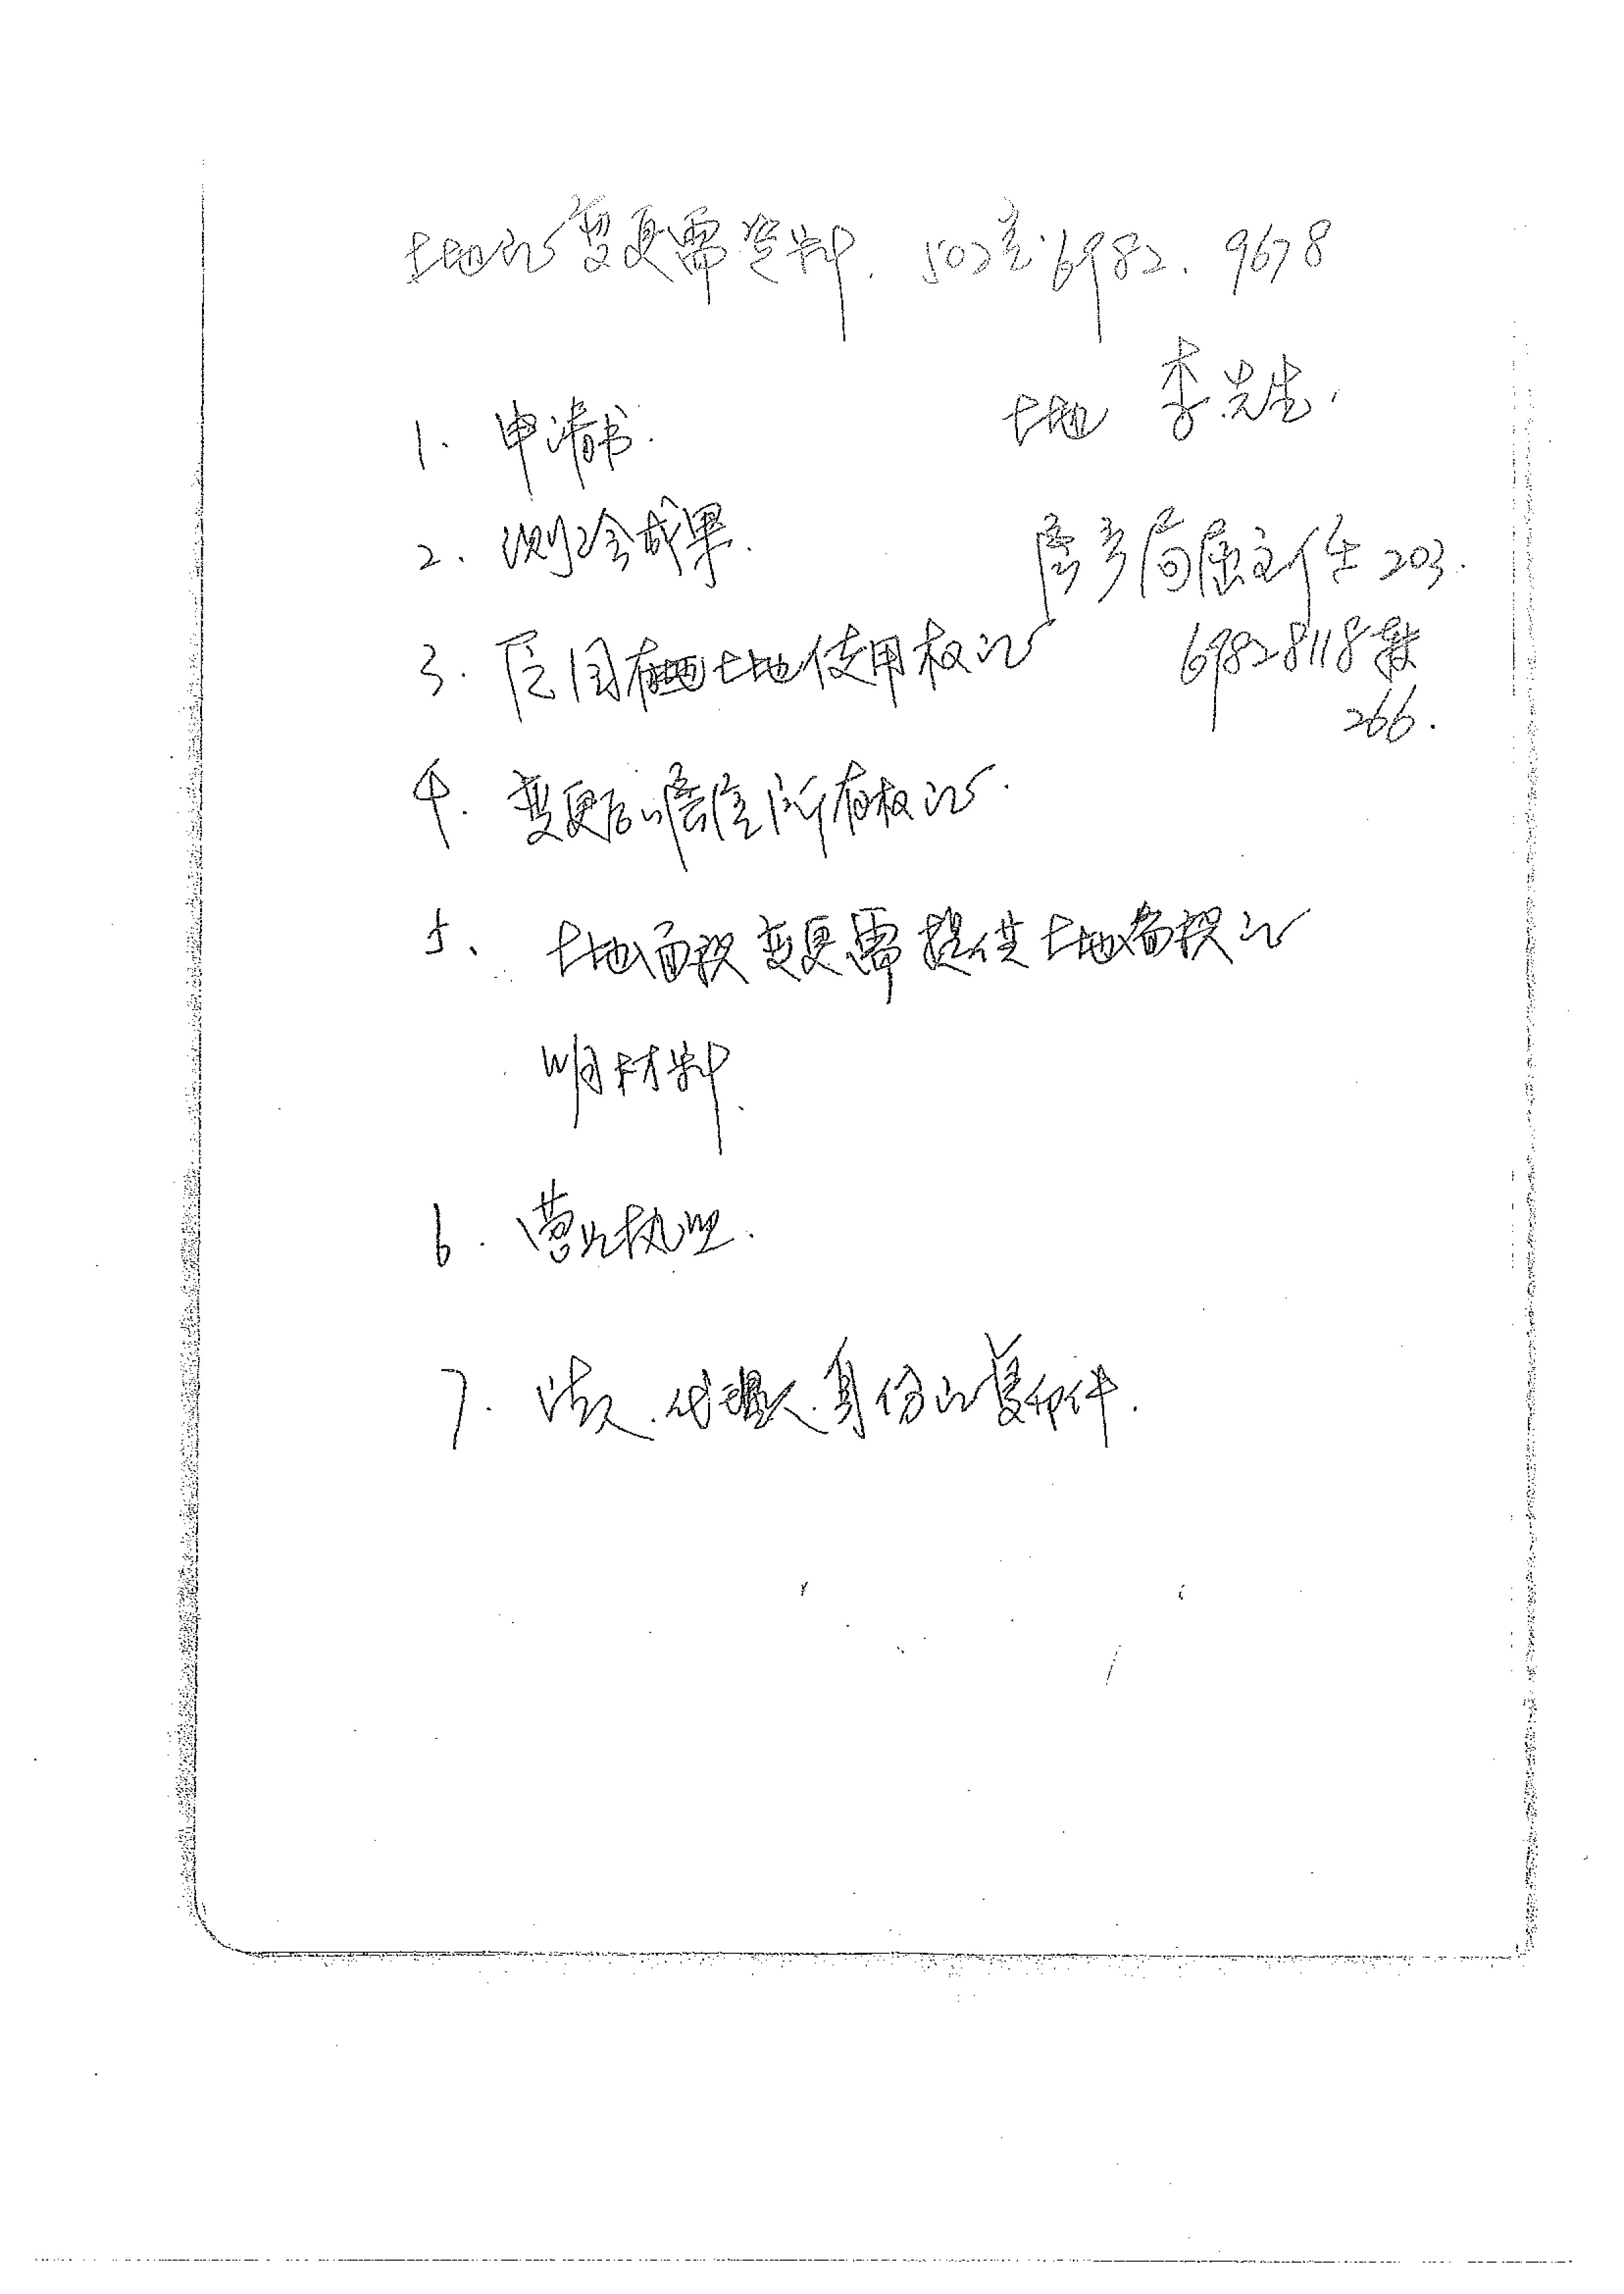 土地证变更需资料. 502室 6982.9678
土地 李先生.
1. 申请书.
2. 测绘成果.
房产局屈主任 203.
3. 原国有土地使用权证
69828118转
266.
4. 变更后房屋所有权证.
5、土地面积变更需提供土地面积证
明材料.
6. 营业执照.
7. 法人.代理人.身份证复印件.